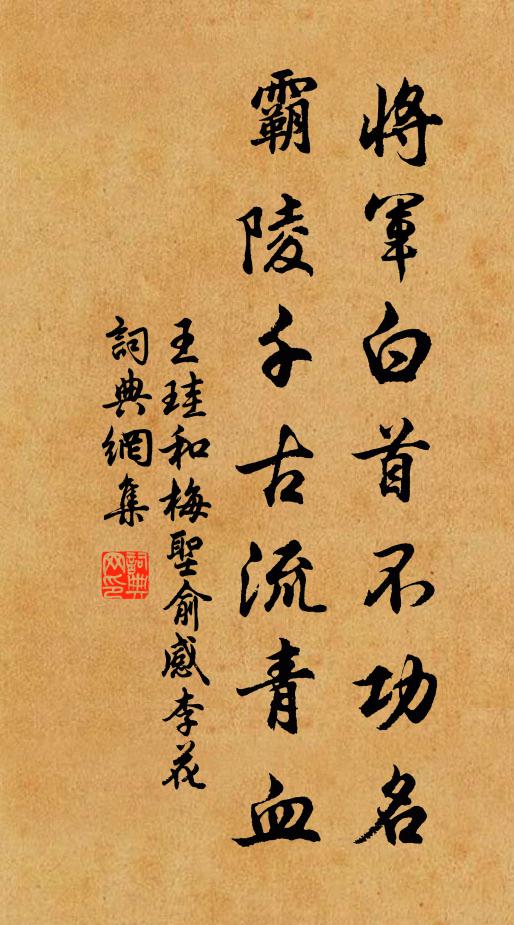 將軍白首不功名
霸陵千古流青血
王珪和梅聖俞感李花
詞典網集
詞典
网印